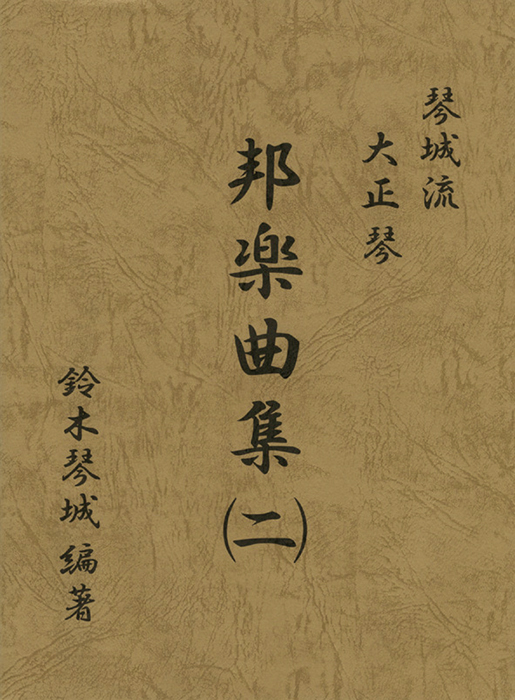 琴城流
大正琴
邦楽曲集(二)
鈴木琴城編著